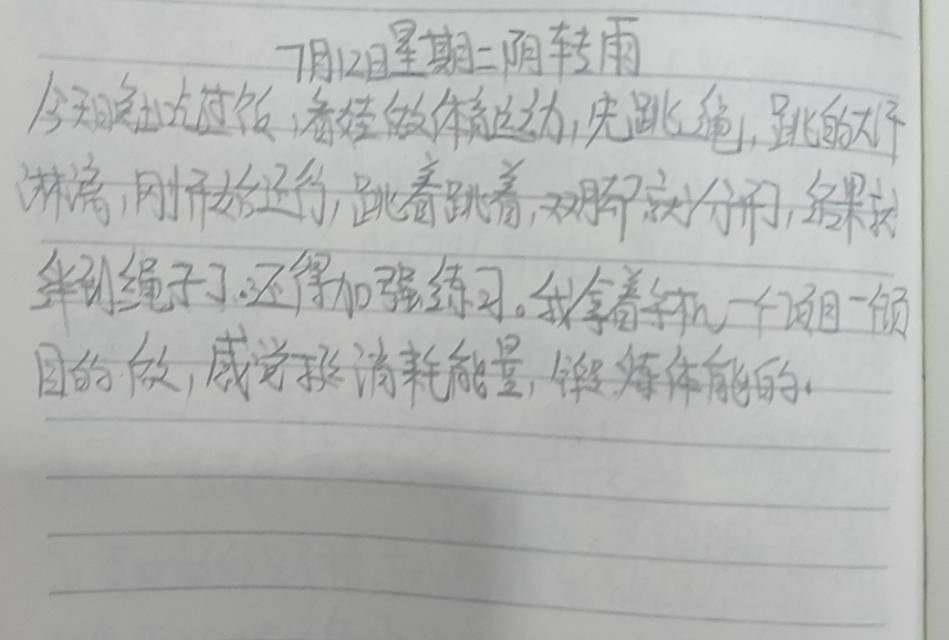 7月12日星期二阴转雨
今天晚上吃过饭,看娃做体育运动,先跳绳,跳的大汗
淋漓,刚开始还行,跳着跳着,双脚就分开,结果就
绊到绳子了.还得加强练习。我拿着手机一个项目一个项
目的做,感觉挺消耗能量,锻炼体能的.